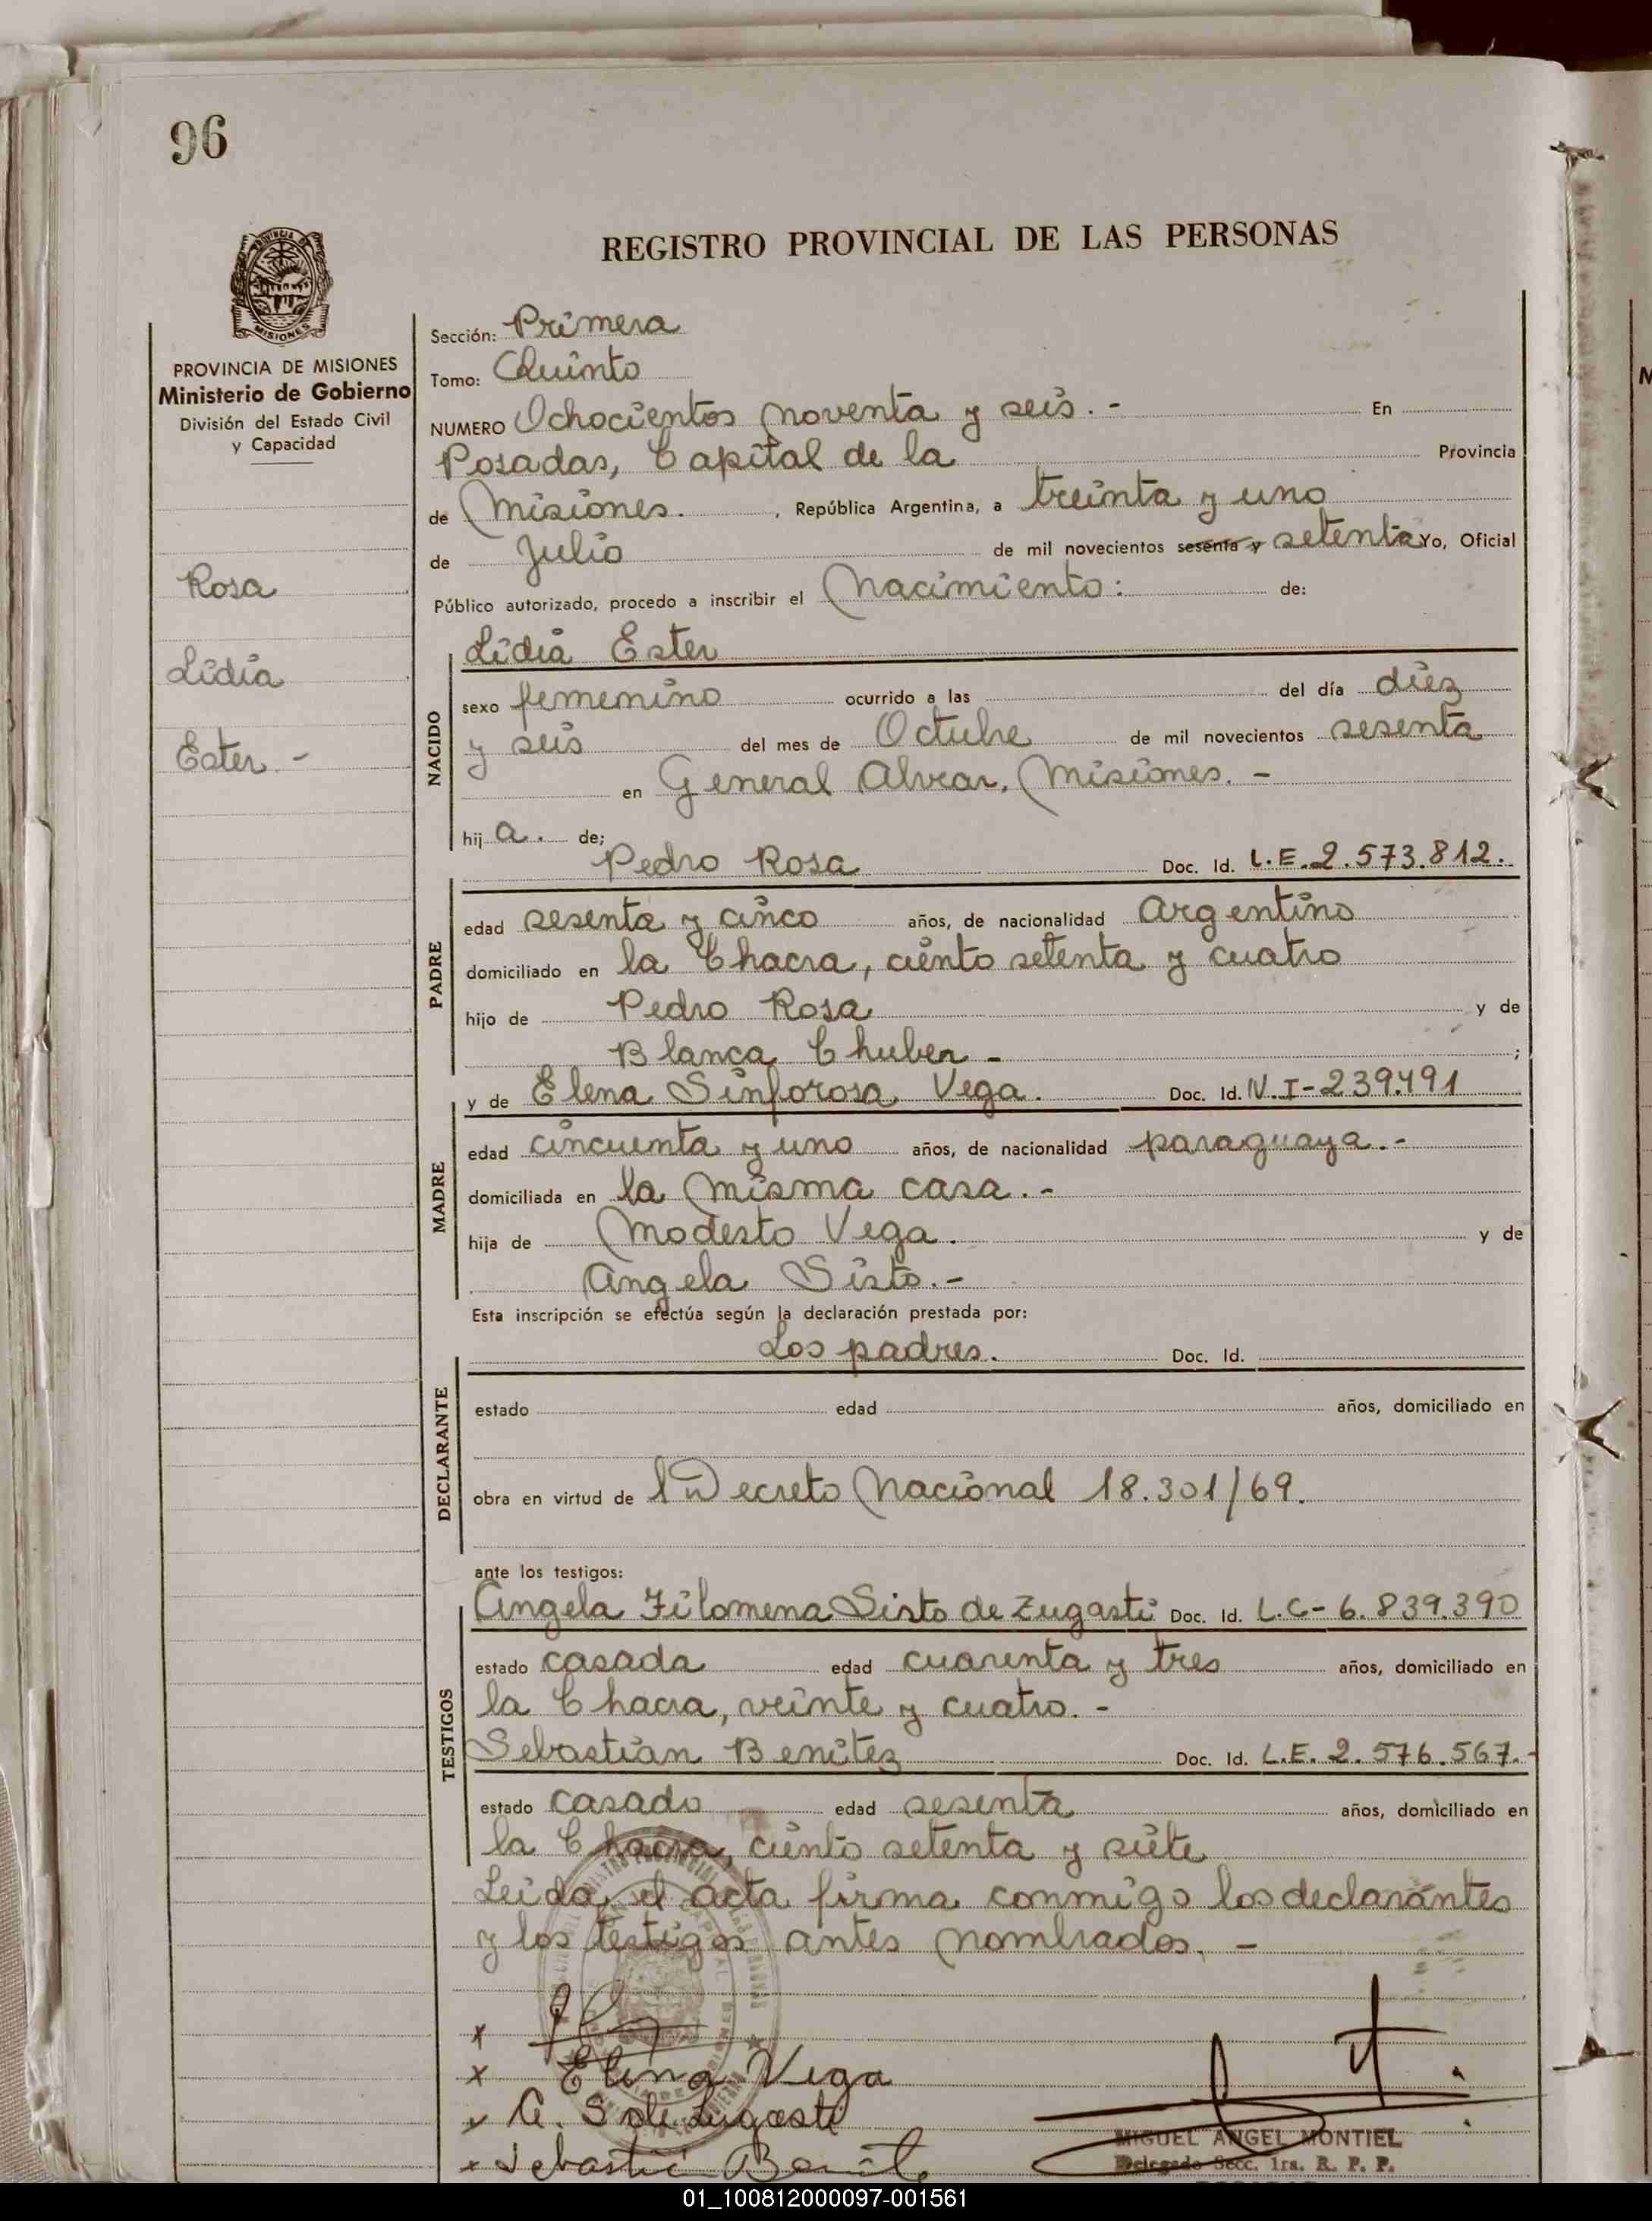 96
REGISTRO PROVINCIAL DE LAS PERSONAS
MISIONES
PROVINCIA DE MISIONES
Ministerio de Gobierno
División del Estado Civil
y Capacidad
Rosa
Lidia
Ester.-
Sección: Primera
Tomo: Quinto
NUMERO Ochocientos noventa y seis.- En
Posadas, Capital de la Provincia
de Misiones. , República Argentina, a treinta y uno
de Julio de mil novecientos sesenta y setenta Yo, Oficial
Público autorizado, procedo a inscribir el Nacimiento: de:
Lidia Ester
NACIDO
sexo femenino ocurrido a las del día diez
y seis del mes de Octubre de mil novecientos sesenta
en General Alvear, Misiones.-
hij a. de;
Pedro Rosa Doc. Id. L.E. 2.573.812.
PADRE
edad sesenta y cinco años, de nacionalidad Argentino
domiciliado en la Chacra, ciento setenta y cuatro
hijo de Pedro Rosa y de
Blanca Chuber - ;
y de Elena Sinforosa Vega. Doc. Id. N.I-239.491
MADRE
edad cincuenta y uno años, de nacionalidad paraguaya.-
domiciliada en la misma casa.-
hija de Modesto Vega. y de
Angela Sisto.-
Esta inscripción se efectúa según la declaración prestada por:
Los padres. Doc. Id.
DECLARANTE
estado edad años, domiciliado en
obra en virtud de Decreto Nacional 18.301/69.
ante los testigos:
Angela Filomena Sisto de Zugasti Doc. Id. L.C- 6.839.390
TESTIGOS
estado casada edad cuarenta y tres años, domiciliado en
la Chacra, veinte y cuatro.-
Sebastian Benitez Doc. Id. L.E. 2.576.567.-
estado casado edad sesenta años, domiciliado en
la Chacra, ciento setenta y siete
Leida el acta firma conmigo los declarantes
y los testigos antes nombrados.-
x
x Elena Vega
x A. S de Zugasti
x Sebastian Benitez
MIGUEL ANGEL MONTIEL
Delegado Secc. 1ra. R. P. P.
01_100812000097-001561